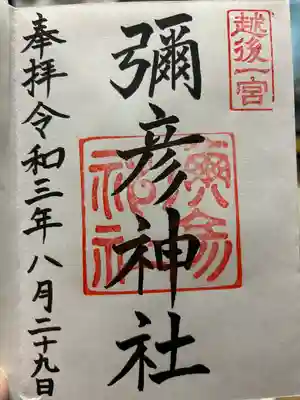 越後一宮
彌彦神社
奉拝令和三年八月二十九日